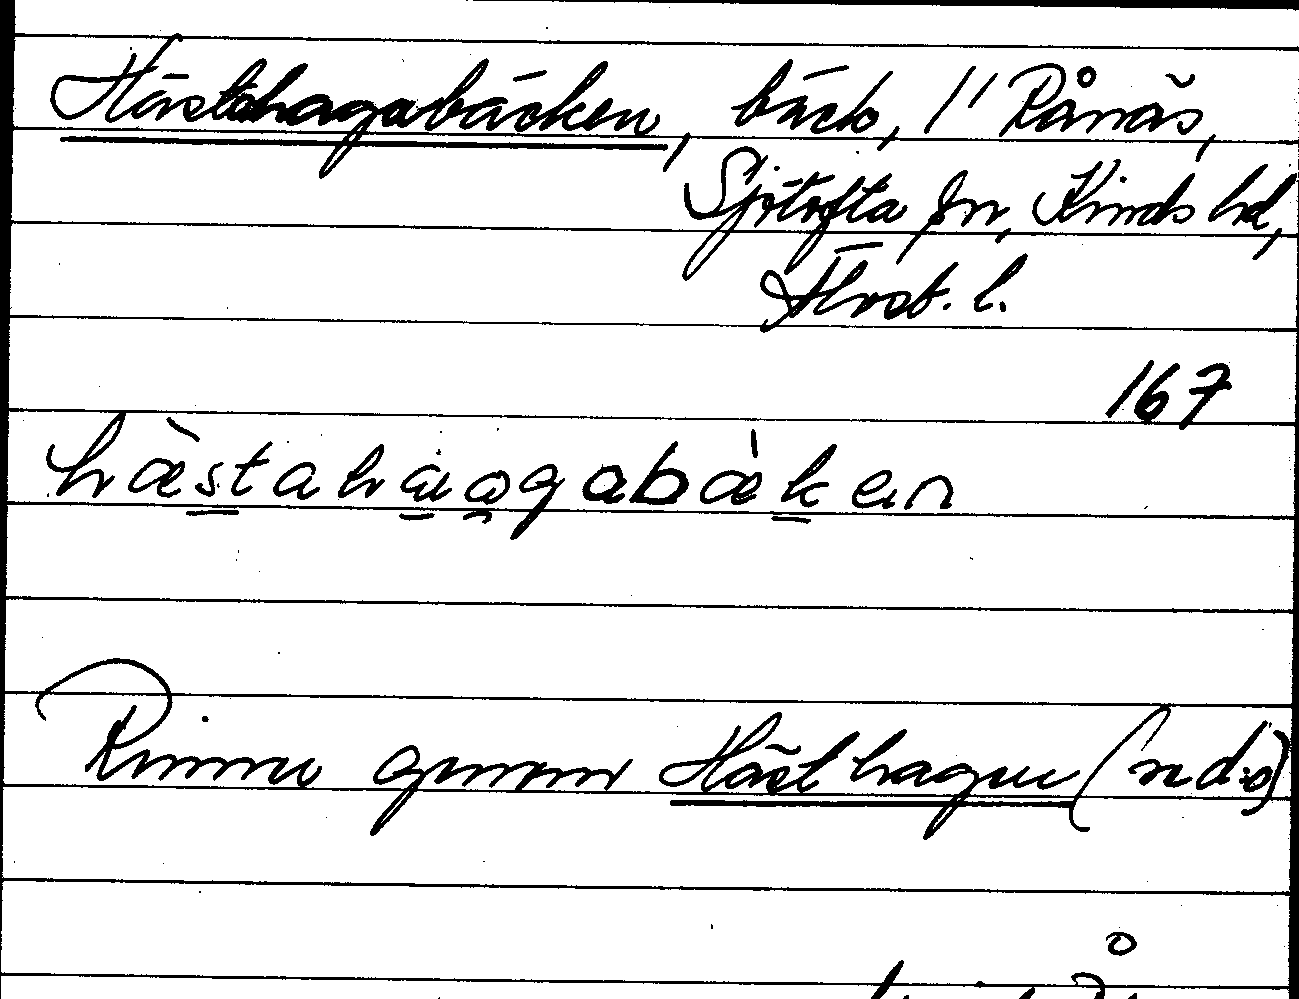 Hästahagabäcken, bäck, 1'' Rånäs,
Sjötofta sn, Kinds hd,
Älvsb. l.
167
hæstahaagabækan
Rinner genom Hästhagen (se d:o)